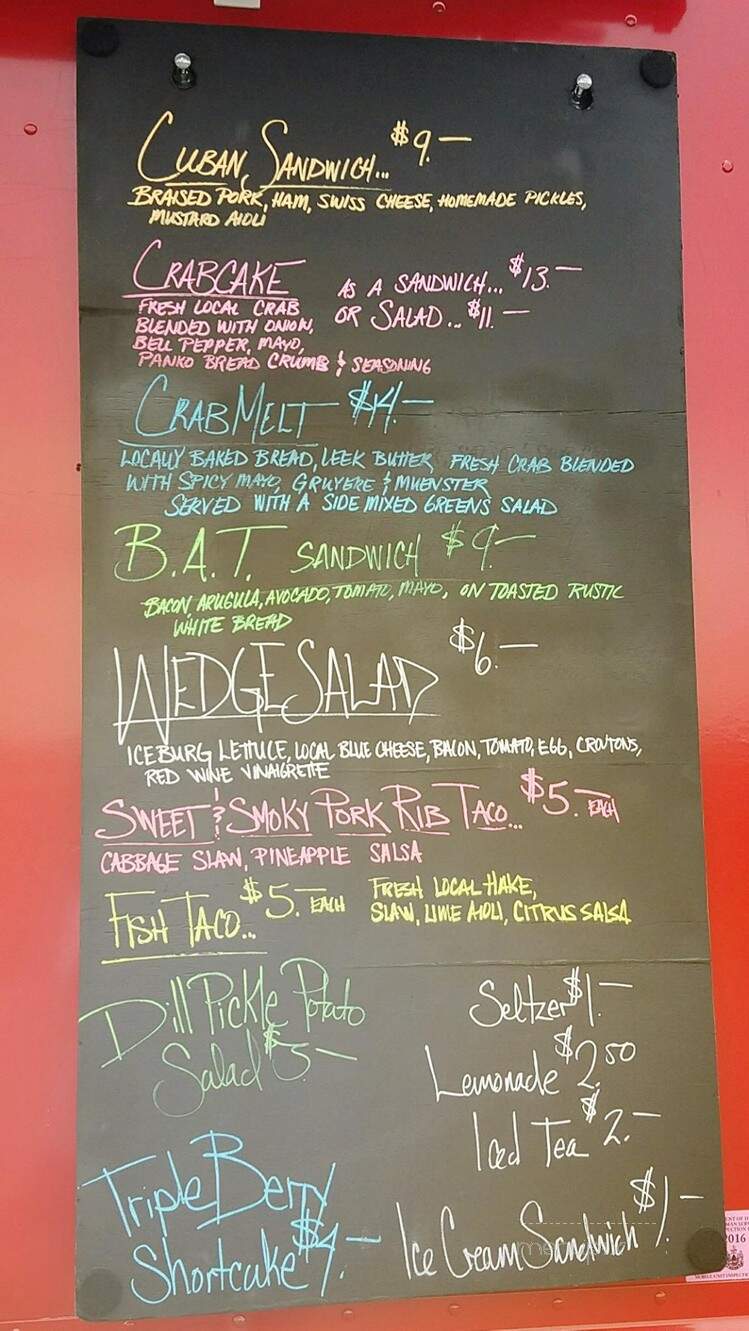 CUBAN SANDWICH... $9.—
BRAISED PORK, HAM, SWISS CHEESE, HOMEMADE PICKLES,
MUSTARD AIOLI
CRABCAKE
AS A SANDWICH... $13.—
OR SALAD... $11.—
FRESH LOCAL CRAB
BLENDED WITH ONION,
BELL PEPPER, MAYO,
PANKO BREAD CRUMB & SEASONING
CRAB MELT $14.—
LOCALLY BAKED BREAD, LEEK BUTTER FRESH CRAB BLENDED
WITH SPICY MAYO, GRUYERE & MUENSTER
SERVED WITH A SIDE MIXED GREENS SALAD
B.A.T. SANDWICH $9.—
BACON, ARUGULA, AVOCADO, TOMATO, MAYO, ON TOASTED RUSTIC
WHITE BREAD
WEDGE SALAD $6.—
ICEBURG LETTUCE, LOCAL BLUE CHEESE, BACON, TOMATO, EGG, CROUTONS,
RED WINE VINAIGRETTE
SWEET & SMOKY PORK RIB TACO... $5.— EACH
CABBAGE SLAW, PINEAPPLE SALSA
FISH TACO... $5.— EACH
FRESH LOCAL HAKE,
SLAW, LIME AIOLI, CITRUS SALSA
Dill Pickle Potato
Salad $3—
Seltzer $1.—
Lemonade $2.50
Iced Tea $2.—
Triple Berry
Shortcake $4.—
Ice Cream Sandwich $1.—
2016